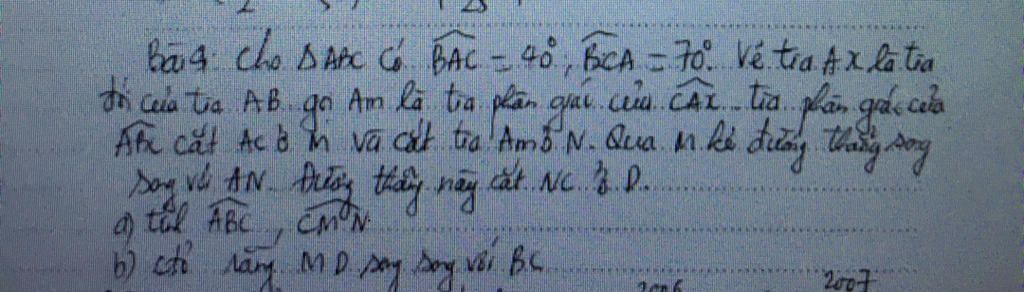 Bài 4: Cho ΔABC có BAC = 40°, BCA = 70°. Vẽ tia Ax là tia
đối của tia AB. gọi Am là tia phân giác của CAx. tia phân giác của
ABC cắt AC ở M và cắt tia Am ở N. Qua M kẻ đường thẳng song
song với AN. Đường thẳng này cắt NC ở D.
a) tính ABC, CMN
b) ctỏ rằng MD song song với BC
2006 2007